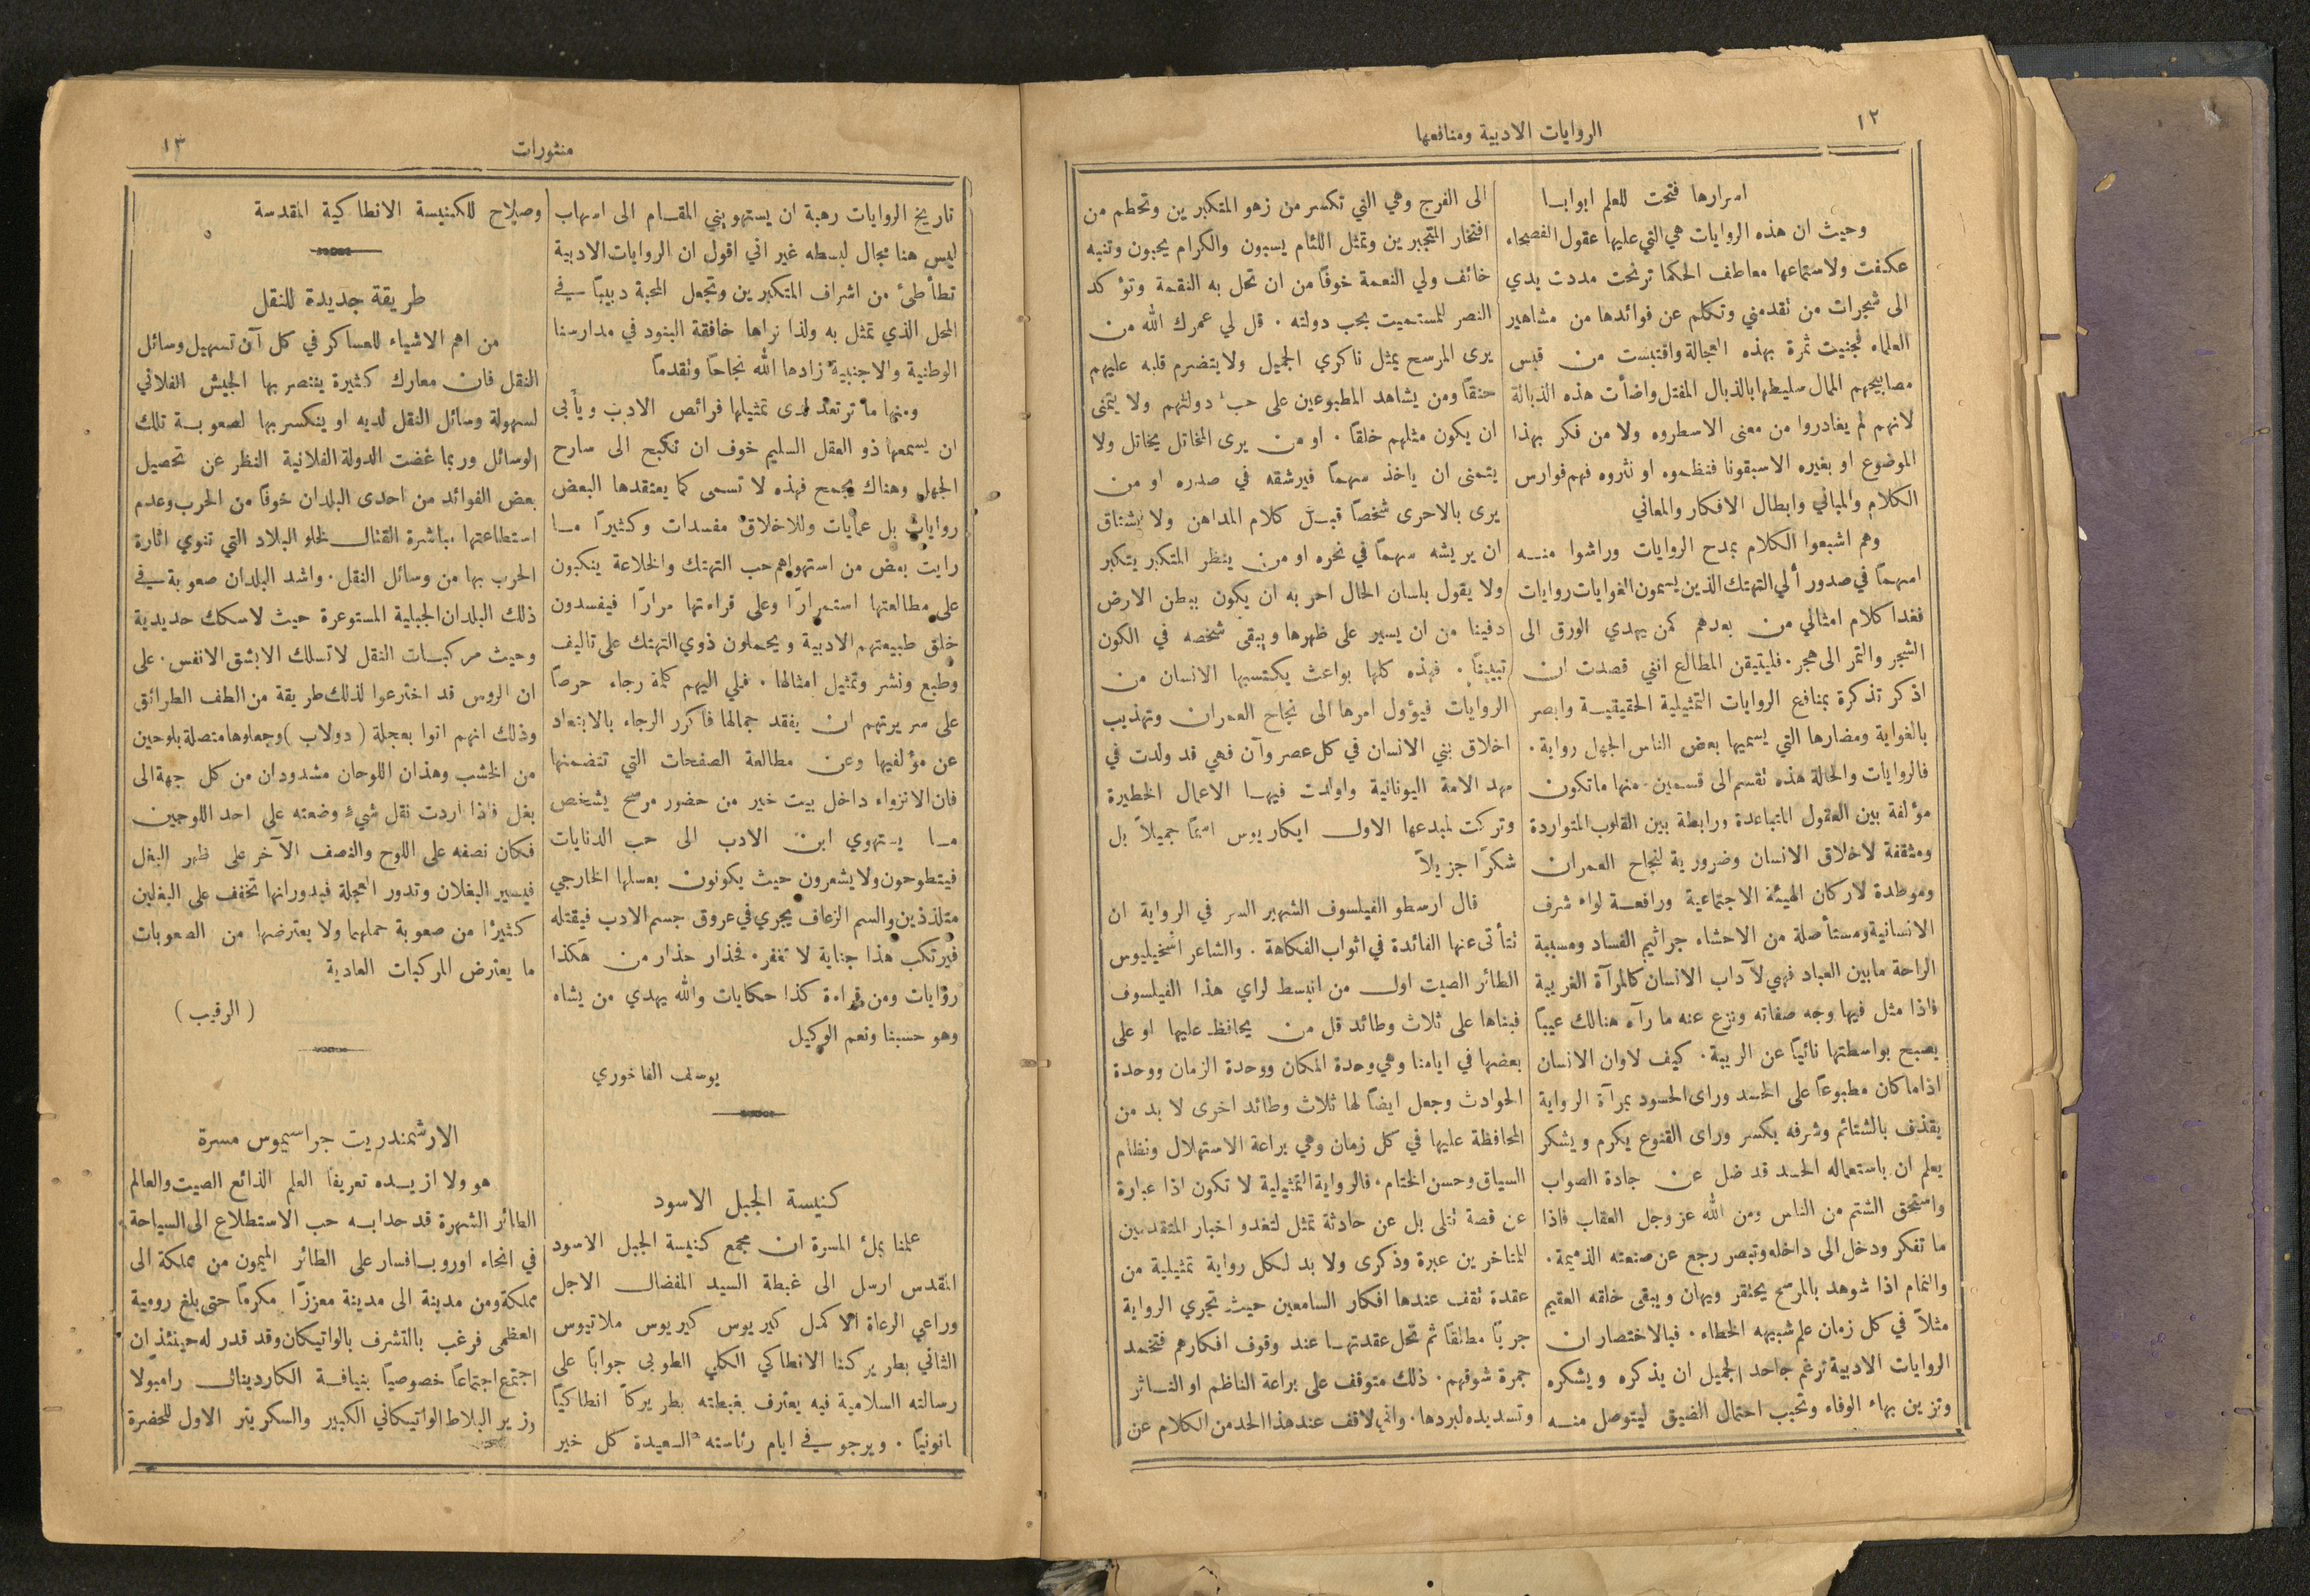 ١٢
الروايات الادبية ومنافعها
امرارها فتحت للعلم ابوابـا
وحيث ان هذه الروايات هي التي عليها عقول الفصحاء
عكفت ولاستماعها معاطف الحكما ترنحت مددت يدي
الى شجرات من تقدمني وتكلم عن فوائدها من مشاهير
العلماء فجنيت ثمرة بهذه العجالة واقتبست من قبس
مصابيحهم المال سليطها بالذبال المفتل واضأت هذه الذبالة
لانهم لم يغادروا من معنى الاسطروه ولا من فكر بهذا
الموضوع او بغيره الاسبقونا فنظموه او نثروه فهم فوارس
الكلام والمباني وابطال الافكار والمعاني
وهم اشبعوا الكلام بمدح الروايات وراشوا منـه
امهماً في صدور ألي التهتك الذين يسمون الغوايات روايات
فغدا كلام امثالي من بعدهم كمن يهدي الورق الى
الشجر والتمر الى هجر. فليتيقن المطالع انني قصدت ان
اذكر تذكرة بمنافع الروايات التمثيلية الحقيقيـة وابصر
بالغواية ومضارها التي يسميها بعض الناس الجهل رواية.
فالروايات والحالة هذه تقسم الى قسمين. منها ما تكون
مؤلفة بين العقول المتباعدة ورابطة بين القلوب المتواردة
ومثقفة لاخلاق الانسان وضرورية لنجاح العمران
وموطدة لاركان الهيئة الاجتماعية ورافعـة لواء شرف
الانسانية ومستأصلة من الاحشاء جراثيم الفساد ومسببة
الراحة مابين العباد فهي لآداب الانسان كالمرآة الغريبة
فاذا مثل فيها وجه صفاته ونزع عنه ما رآه هنالك عيباً
يصبح بواسطتها نائياً عن الريبة. كيف لاوان الانسان
اذا ما كان مطبوعاً على الحسد وراى الحسود بمرآة الرواية
يقذف بالشتائم وشرفه يكسر وراى القنوع يكرم ويشكر
يعلم ان باستعماله الحسد قد ضل عن جادة الصواب
واستحق الشتم من الناس ومن الله عز وجل العقاب فاذا
ما تفكر ودخل الى داخله وتبصر رجع عن صنعته الذميمة.
والنمام اذا شوهد بالمرسح يحتقر ويهان ويبقى خلقه العقيم
مثلاً في كل زمان علم شبيهه الخطاء. فبالاختصار ان
الروايات الادبية ترغم جاحد الجميل ان يذكره ويشكره
وتزين بهاء الوفاء وتحبب احتمال الضيق ليتوصل منـه
الى الفرج وهي التي تكسر من زهو المتكبرين وتحطم من
افتخار المتجبرين وتمثل اللئام يسبون والكرام يحبون وتنبه
خائف ولي النعمة خوفاً من ان تحل به النقمة وتؤكد
النصر للمستميت بحب دولته. قل لي عمرك الله من
يرى المرسح يمثل ناكري الجميل ولا يتضرم قلبه عليهم
حنقاً ومن يشاهد المطبوعين على حب دولتهم ولا يتمنى
ان يكون مثلهم خلقاً. او من يرى المخاتل يخاتل ولا
يتمنى ان ياخذ سهماً فيرشقه في صدره او من
يرى بالاحرى شخصاً قبـل كلام المداهن ولا يشتاق
ان يريشه سهماً في نحره او من ينظر المتكبر يتكبر
ولا يقول بلسان الحال احر به ان يكون ببطن الارض
دفينا من ان يسير على ظهرها ويبقى شخصه في الكون
تبيينًا. فهذه كلها بواعث يكتسبها الانسان من
الروايات فيؤول امرها الى نجاح العمران وتهذيب
اخلاق بني الانسان في كل عصر وآن فهي قد ولدت في
مهد الامة اليونانية واولدت فيهـا الاعمال الخطيرة
وتركت لمبدعها الاول ايكاريوس اسماً جميلاً بل
شكرًا جزيلاً
قال ارسطو الفيلسوف الشهير السر في الرواية ان
تتأتى عنها الفائدة في اثواب الفكاهة. والشاعر اسخيليوس
الطائر الصيت اول من انبسط لراي هذا الفيلسوف
فبناها على ثلاث وطائد قل من يحافظ عليها او على
بعضها في ايامنا وهي وحدة المكان ووحدة الزمان ووحدة
الحوادث وجعل ايضاً لها ثلاث وطائد اخرى لا بد من
المحافظة عليها في كل زمان وهي براعة الاستهلال ونظام
السياق وحسن الختام. فالرواية التمثيلية لا تكون اذا عبارة
عن قصة تتلى بل عن حادثة تمثل لتغدو اخبار المتقدمين
للمتاخرين عبرة وذكرى ولا بد لكل رواية تمثيلية من
عقدة تقف عندها افكار السامعين حيث تجري الرواية
جرياً مطلقاً ثم تحل عقدتهـا عند وقوف افكارهم فتخمد
جمرة شوقهم. ذلك متوقف على براعة الناظم او النـاثر
وتسديده لبردها. واني لاقف عند هذا الحد من الكلام عن
منثورات
١٣
تاريخ الروايات رهبة ان يستهويني المقـام الى اسهاب
ليس هنا مجال لبسطه غير اني اقول ان الروايات الادبية
تطأطئ من اشراف المتكبرين وتجعل المحبة دبيباً في
المحل الذي تمثل به ولذا نراها خافقة البنود في مدارسنا
الوطنية والاجنبية زادها الله نجاحاً وتقدماً
ومنها ما ترتعد لدى تمثيلها فرائص الادب ويأبى
ان يسمعها ذو العقل السليم خوف ان تكبح الى سارح
الجهل وهناك يجمح فهذه لا تسمى كما يعتقدها البعض
روايات بل عمايات وللاخلاق مفسدات وكثيرًا مـا
رايت بعض من استهواهم حب التهتك والخلاعة ينكبون
على مطالعتها استمرارًا وعلى قراءتها مرارًا فيفسدون
خلق طبيعتهم الادبية ويحملون ذوي التهتك على تاليف
وطبع ونشر وتمثيل امثالها. فلي اليهم كلمة رجاء حرصاً
على سريرتهم ان يفقد جمالها فاكرر الرجاء بالابتعاد
عن مؤلفيها وعن مطالعة الصفحات التي تتضمنها
فان الانزواء داخل بيت خير من حضور مرسح يشخص
مـا يستهوي ابن الادب الى حب الدنايات
فيتطوحون ولا يشعرون حيث يكونون بعسلها الخارجي
متلذذين والسم الزعاف يجري في عروق جسم الادب فيقتله
فيرتكب هذا جناية لا تغفر. فحذار حذار من هكذا
روايات ومن قراءة كذا حكايات والله يهدي من يشاء
وهو حسبنا ونعم الوكيل
يوسف الفاخوري
كنيسة الجبل الاسود
علمنا بملء المسرة ان مجمع كنيسة الجبل الاسود
المقدس ارسل الى غبطة السيد المفضال الاجل
وراعي الرعاة الاكمل كيريوس كيريوس ملاتيوس
الثاني بطريركنا الانطاكي الكلي الطوبى جواباً على
رسالته السلامية فيه يعترف بغبطته بطريركاً انطاكياً
انونياً. ويرجو في ايام رئاسته السعيدة كل خير
وصلاح للكنيسة الانطاكية المقدسة
طريقة جديدة للنقل
من اهم الاشياء للعساكر في كل آن تسهيل وسائل
النقل فان معارك كثيرة ينتصر بها الجيش الفلاني
لسهولة وسائل النقل لديه او ينكسر بها لصعوبـة تلك
الوسائل وربما غضت الدولة الفلانية النظر عن تحصيل
بعض الفوائد من احدى البلدان خوفاً من الحرب وعدم
استطاعتها مباشرة القتال لخلو البلاد التي تنوي اثارة
الحرب بها من وسائل النقل. واشد البلدان صعوبة في
ذلك البلدان الجبلية المستوعرة حيث لا سكك حديدية
وحيث مركبـات النقل لا تسلك الا بشق الانفس. على
ان الروس قد اخترعوا لذلك طريقة من الطف الطرائق
وذلك انهم اتوا بعجلة (دولاب) وجعلوها متصلة بلوحين
من الخشب وهذان اللوحان مشدودان من كل جهة الى
بغل فاذا اردت نقل شيء وضعته على احد اللوحين
فكان نصفه على اللوح والنصف الآخر على ظهر البغل
فيسير البغلان وتدور العجلة فبدورانها تخفف على البغلين
كثيرًا من صعوبة حملهما ولا يعترضها من الصعوبات
ما يعترض المركبات العادية
(الرقيب)
الارشمندريت جراسيموس مسرة
هو ولا ازيـده تعريفاً العلم الذائع الصيت والعالم
الطائر الشهرة قد حدا بـه حب الاستطلاع الى السياحة
في انحاء اوروبـا فسار على الطائر الميمون من مملكة الى
مملكة ومن مدينة الى مدينة معززًا مكرماً حتى بلغ رومية
العظمى فرغب بالتشرف بالواتيكان وقد قدر له حينئذ ان
اجتمع اجتماعاً خصوصياً بنيافـة الكاردينال رامبولا
وزير البلاط الواتيكاني الكبير والسكريتر الاول للحضرة